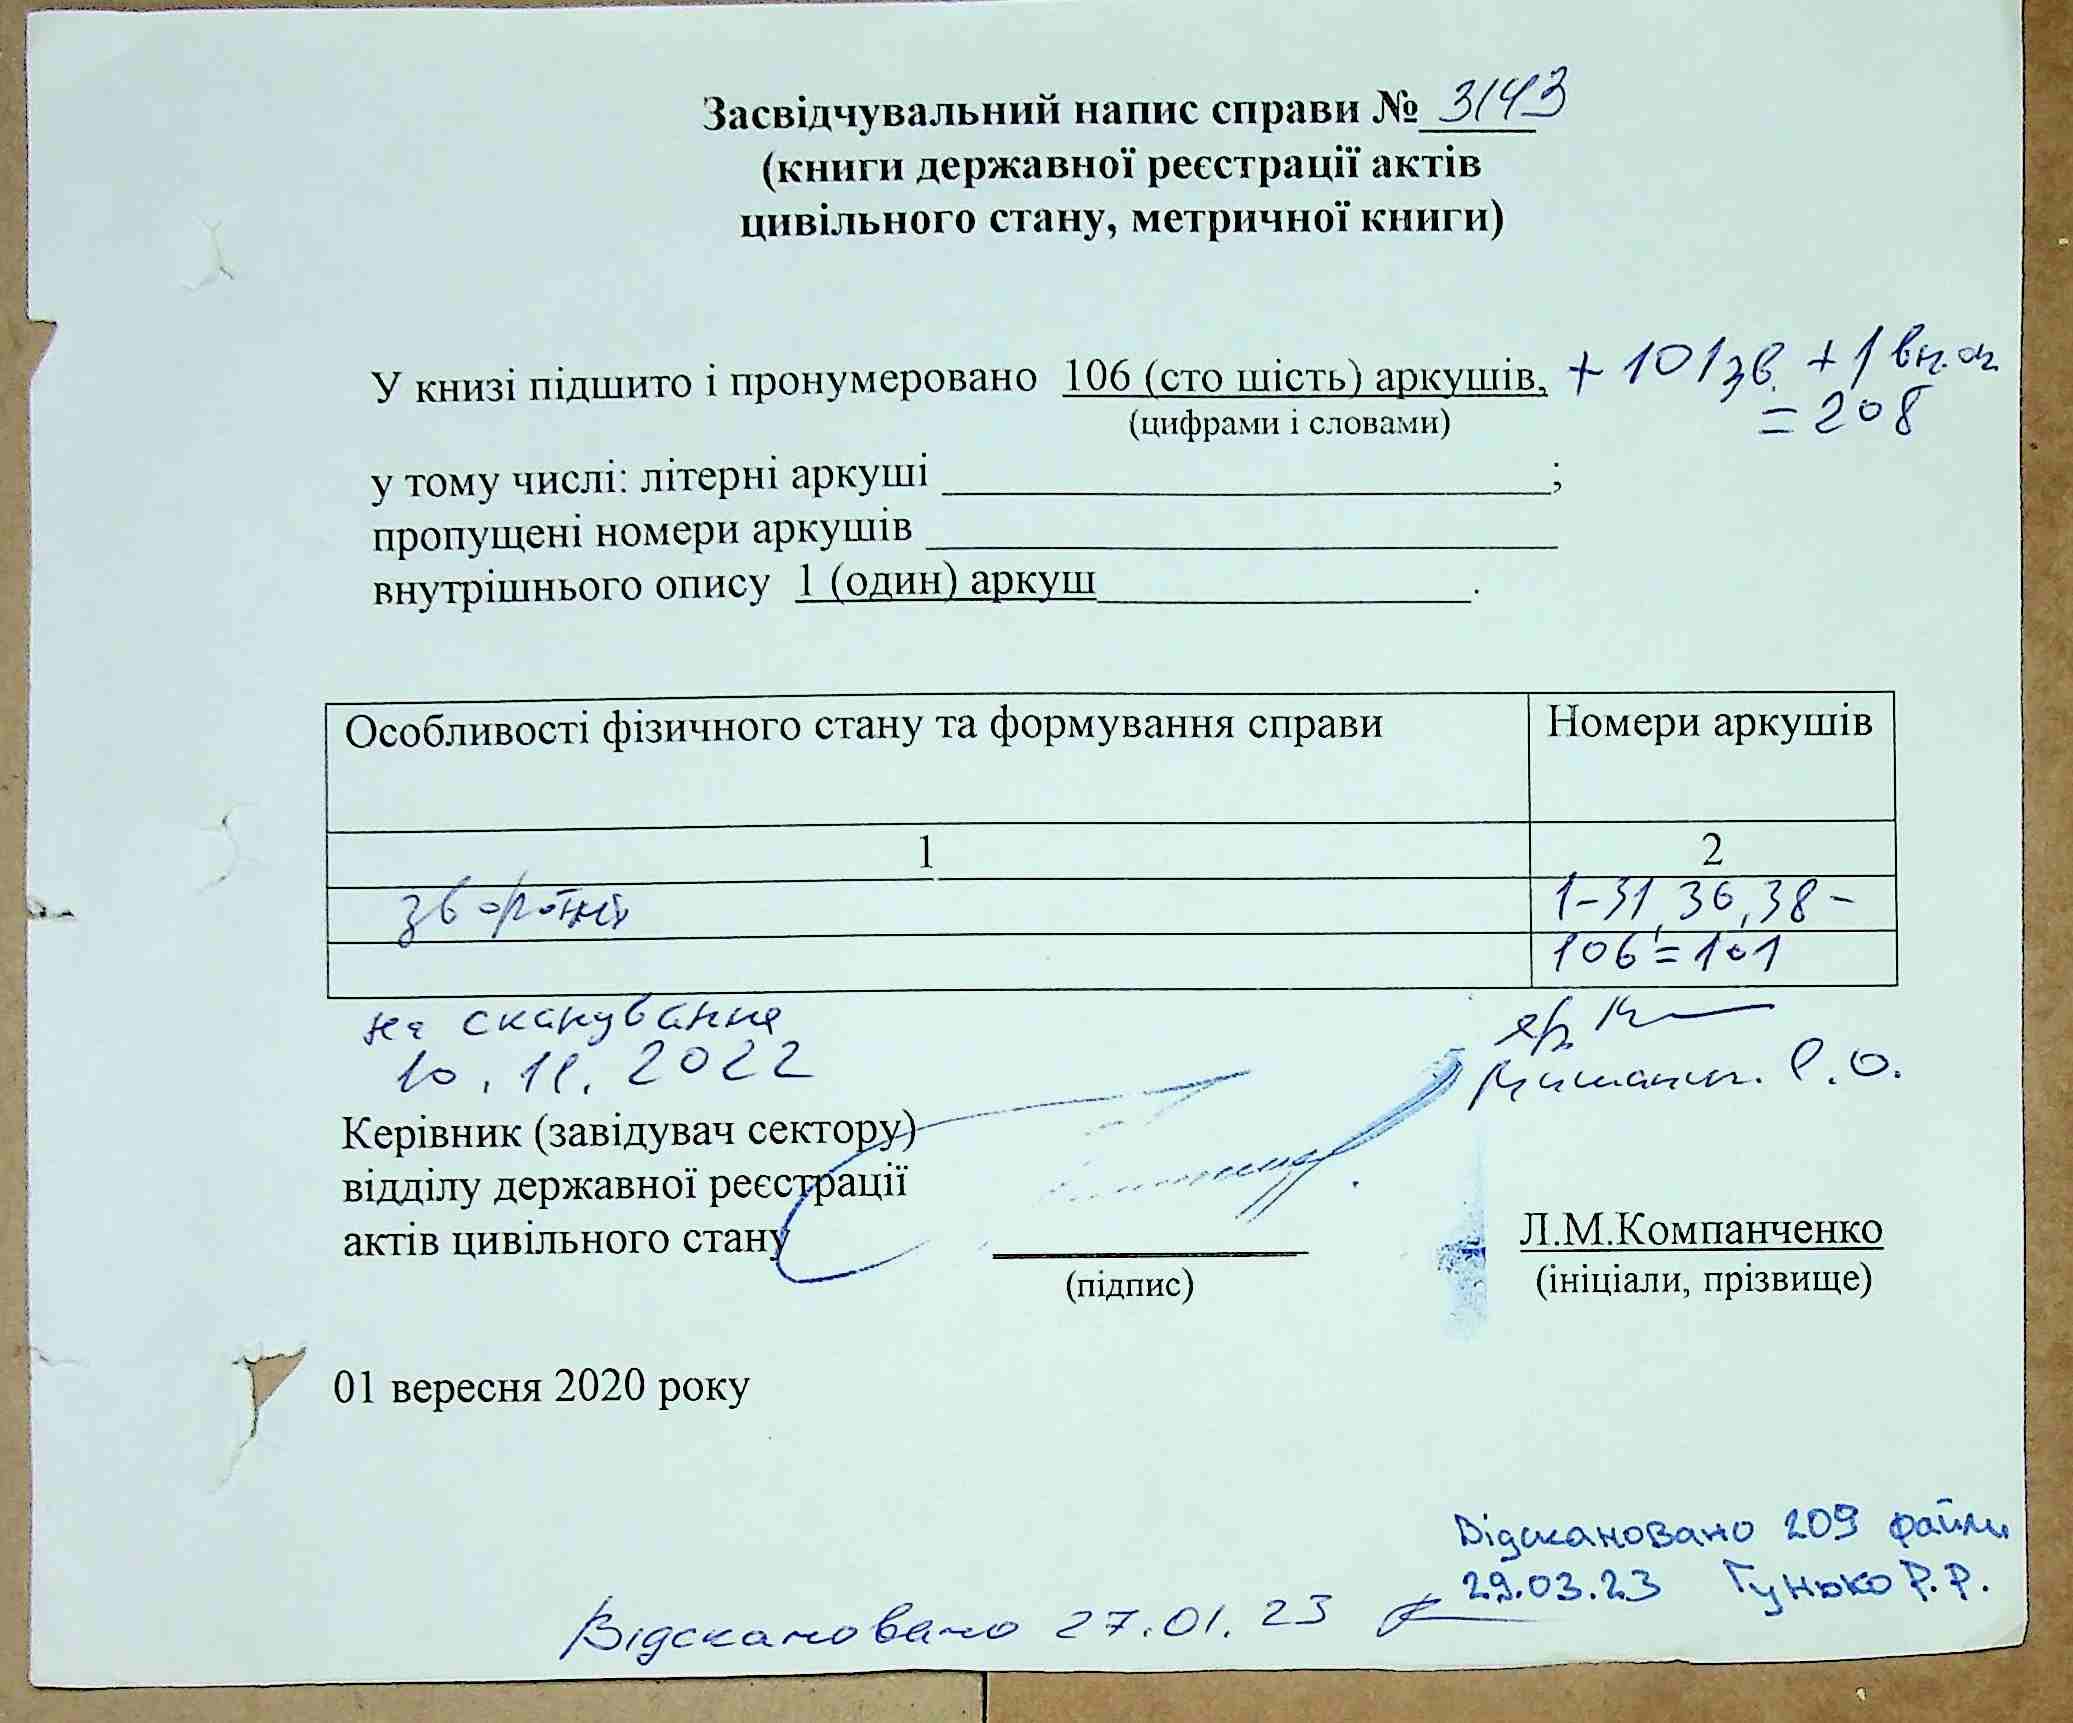 Засвідчувальний напис справи № 3143
(книги державної реєстрації актів
цивільного стану, метричної книги)
У книзі підшито і пронумеровано 106 (сто шість) аркушів, + 101 зв. + 1 вн. оп.
= 208
(цифрами і словами)
у тому числі: літерні аркуші ;
пропущені номери аркушів
внутрішнього опису 1 (один) аркуш .
Особливості фізичного стану та формування справи Номери аркушів
1 2
зворотній 1-31, 36, 38-
106 = 101
на сканування
10.11.2022
Р.О.
Керівник (завідувач сектору)
відділу державної реєстрації
актів цивільного стану
Л.М.Компанченко
(підпис) (ініціали, прізвище)
01 вересня 2020 року
Відскановано 209 файли
29.03.23 Гунько Р.Р.
Відскановано 27.01.23